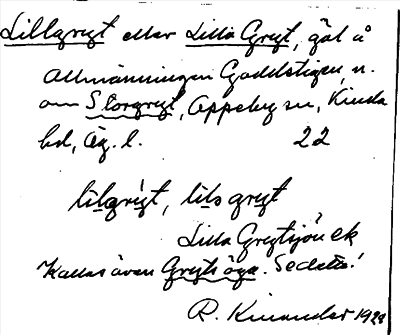 Lillgrygt eller Lilla Grygt, göl å
Allmänningen Gaddstigen, n.
om Storgrygt, Oppeby sn, Kinda
hd, Ög. l. 22
lilgrygt, lila grygt
Lilla Grytsjön ek
Kallas även Grytsöga. Se detta!
R. Kinander 1929